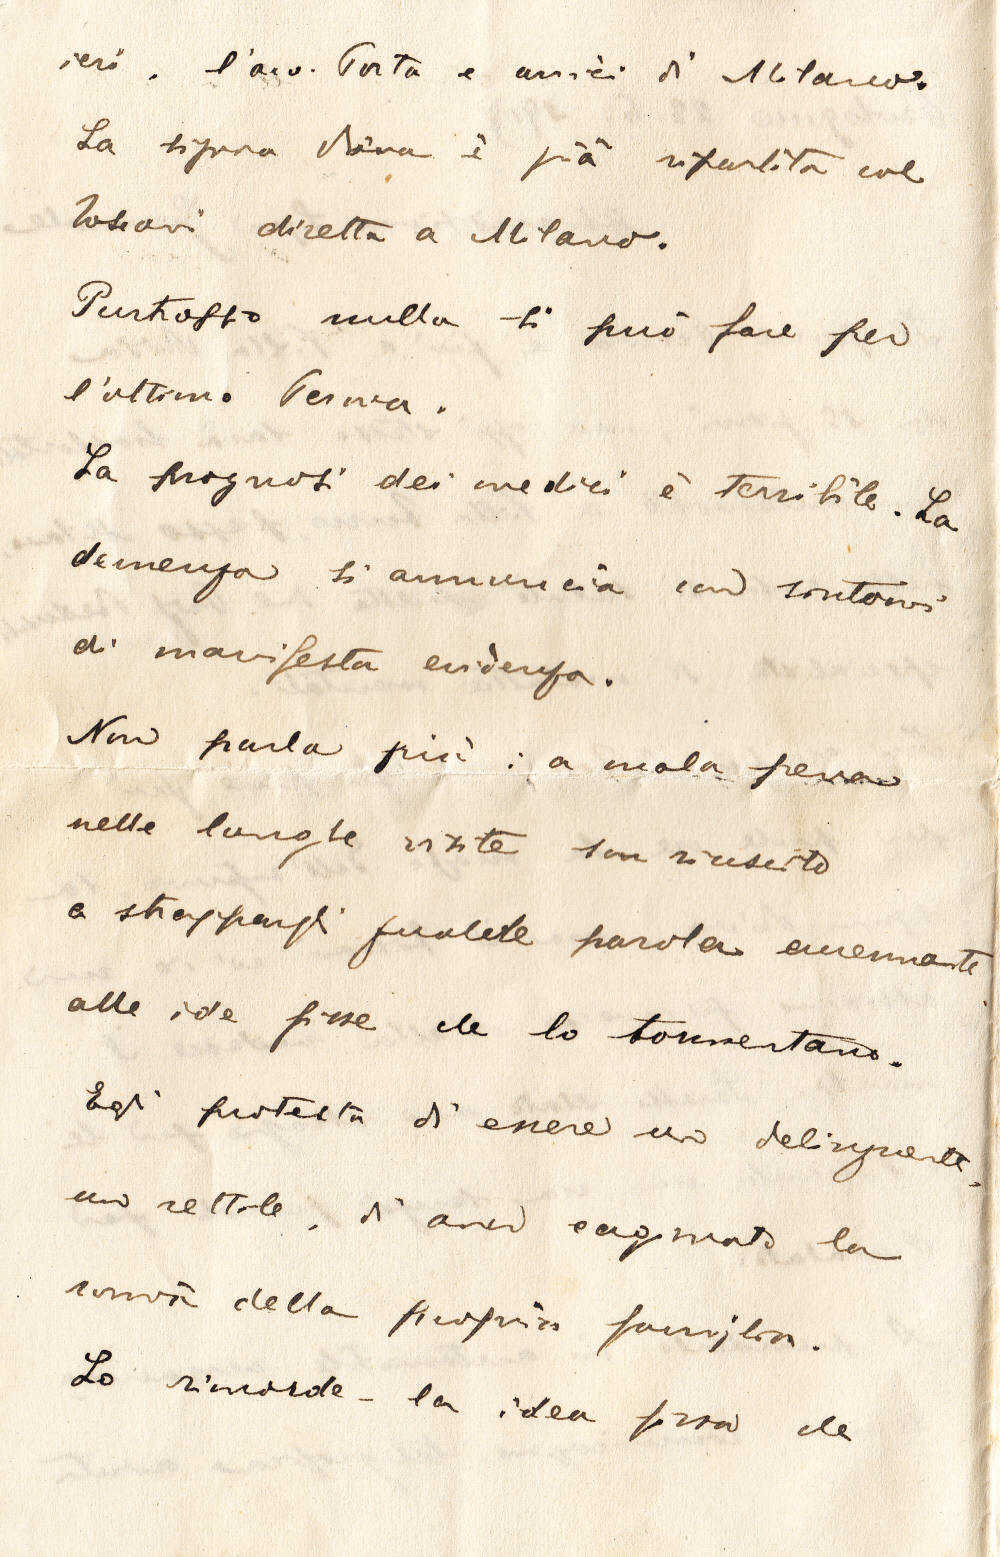 ieri, l'avv. Porta e amici di Milano.
La signora Dina è già ripartita col
diretta a Milano.
Purtroppo nulla si può fare per
l'ottimo Perna.
La prognosi dei medici è terribile. La
demenza si annuncia con sintomi
di manifesta evidenza.
Non parla più: a mala pena
nelle lunghe visite son riuscito
a strappargli qualche parola accennante
alle idee fisse che lo tormentano.
Egli protesta di essere un delinquente,
un rettile, di aver cagionato la
rovina della propria famiglia.
Lo rimorde la idea fissa che